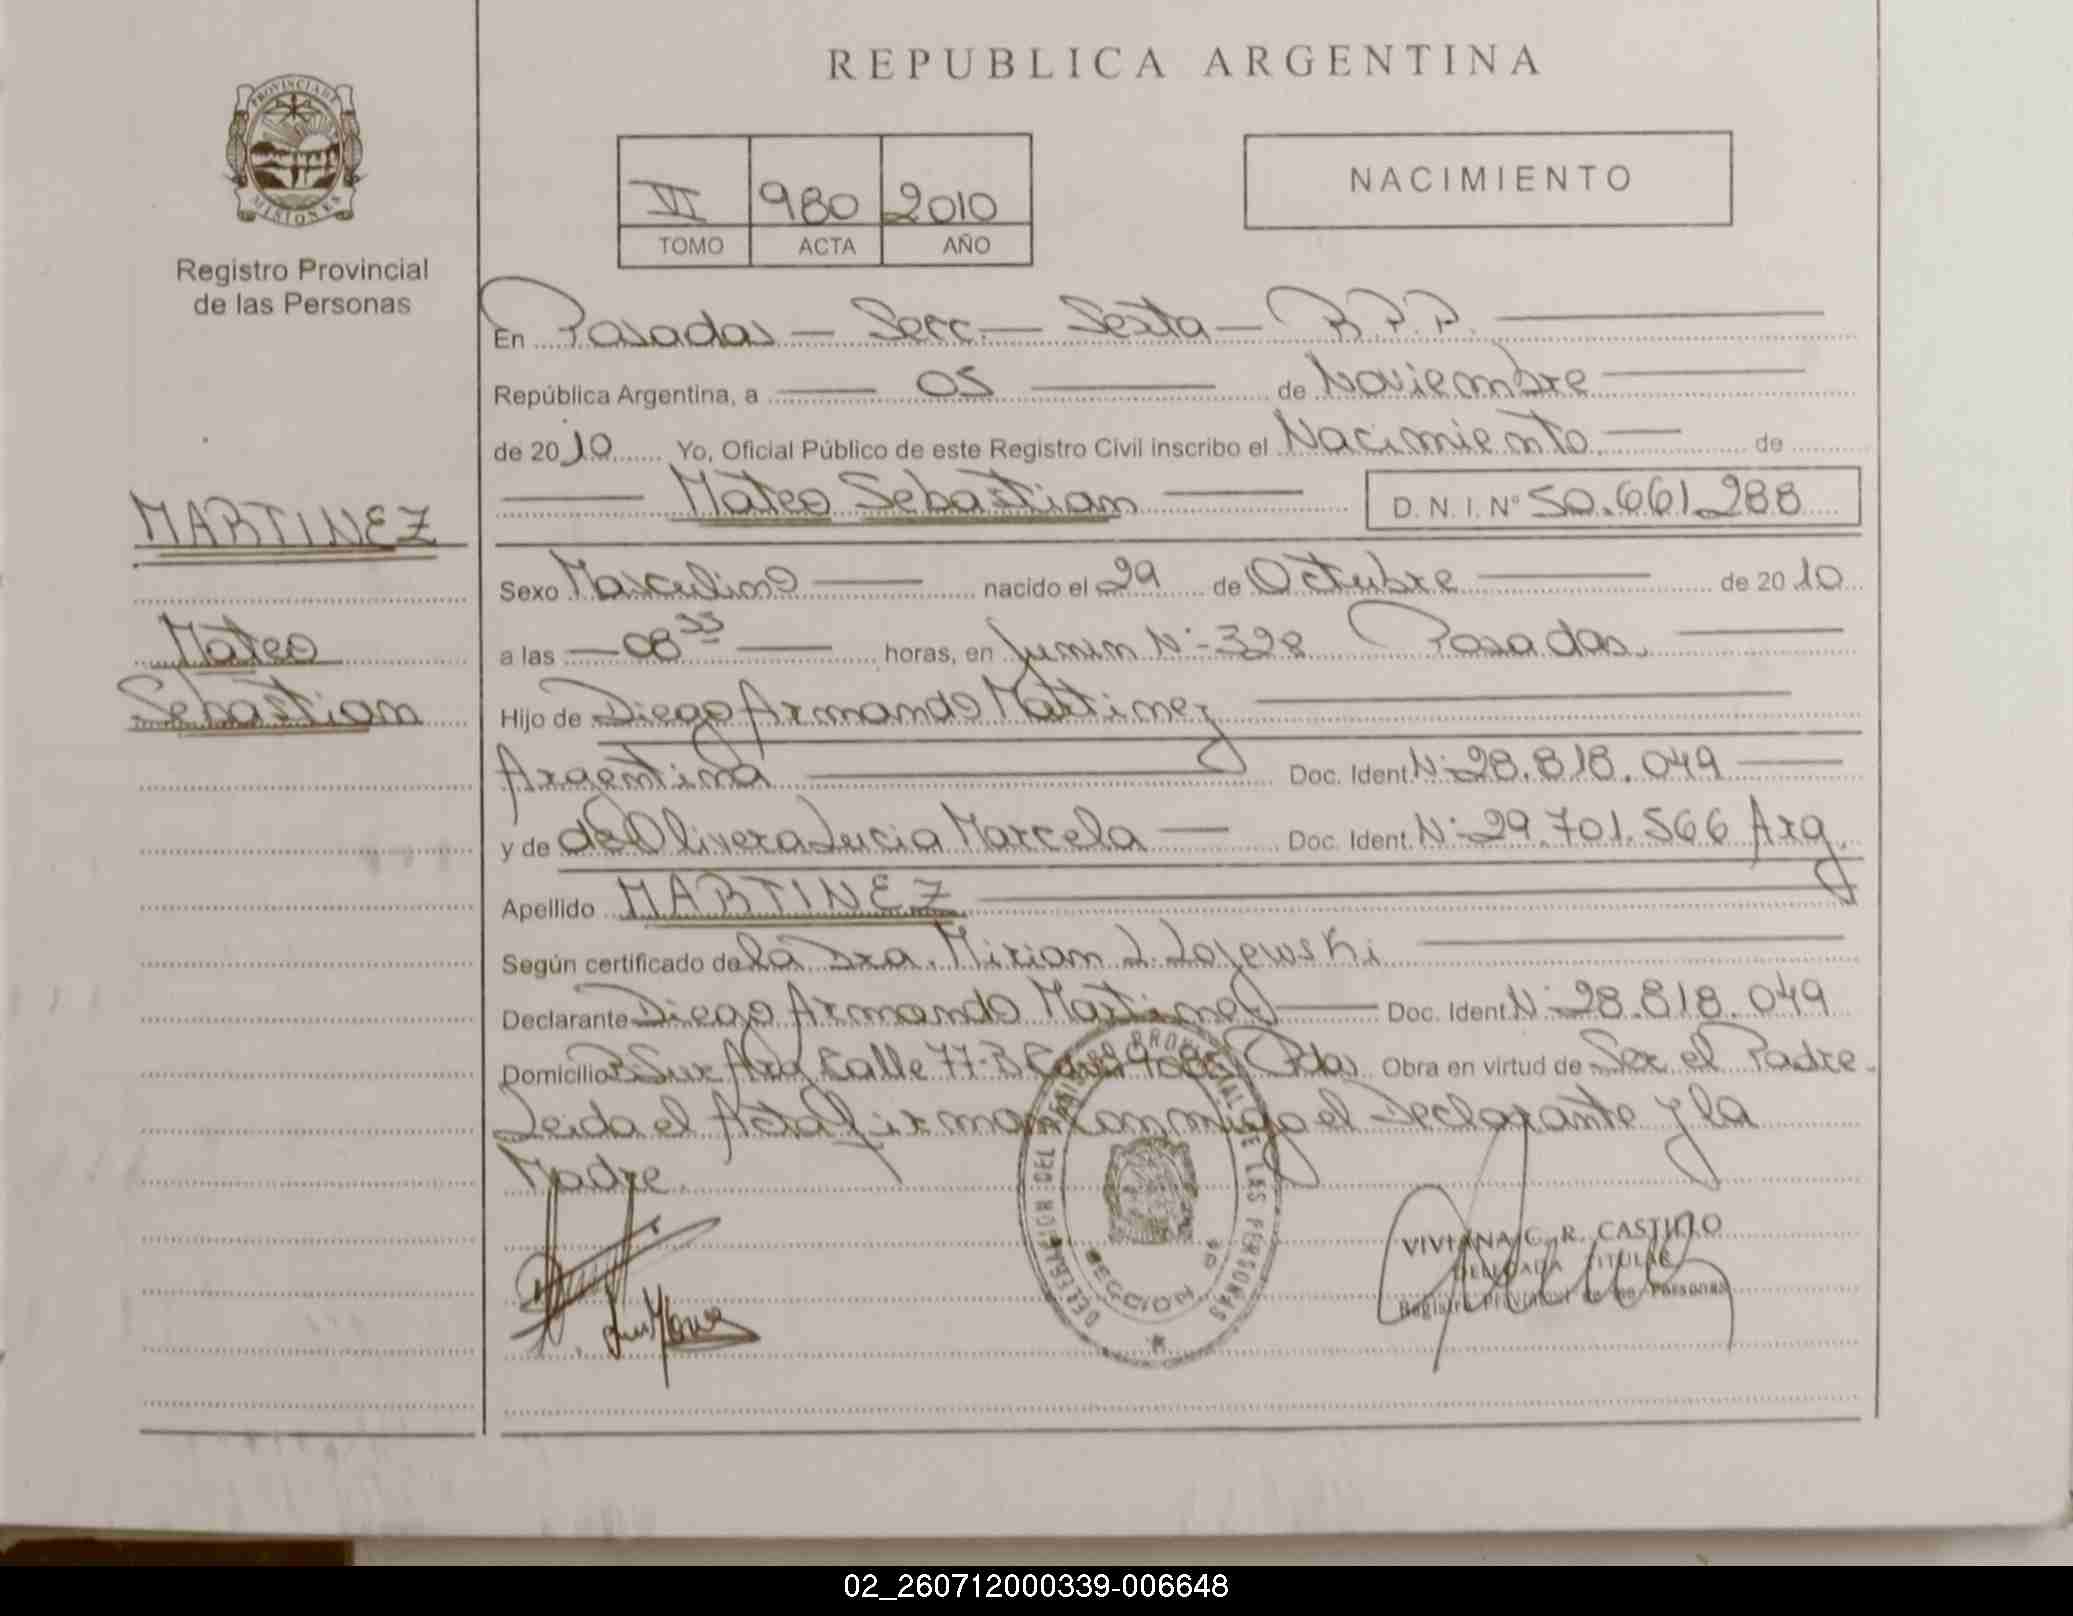 REPUBLICA ARGENTINA
PROVINCIA DE MISIONES
Registro Provincial
de las Personas
VI 980 2010
TOMO ACTA AÑO
NACIMIENTO
En Posadas - Secc. - Sexta - R.P.P.
República Argentina, a 05 de Noviembre
de 2010 Yo, Oficial Público de este Registro Civil inscribo el Nacimiento de
Mateo Sebastian D.N.I. Nº 50.661.288
MARTINEZ
Mateo
Sebastian
Sexo Masculino nacido el 29 de Octubre de 2010
a las 08 33 horas, en Junin Nº 328 Posadas.
Hijo de Diego Armando Martinez
Argentina Doc. Ident. Nº 28.818.049
y de de Olivera Lucia Marcela Doc. Ident. Nº 29.701.566 Arg.
Apellido MARTINEZ
Según certificado de la Dra. Miriam L. Lojewski
Declarante Diego Armando Martinez Doc. Ident. Nº 28.818.049
Domicilio Bº Sur Arg Calle 77-B Casa Pdas Obra en virtud de Ser el Padre.
Leida el Acta firman conmigo el Declarante y la
Madre.
REGISTRO PROVINCIAL DE LAS PERSONAS
SECCION
VIVIANA C. R. CASTILLO
DELEGADA TITULAR
Registro Provincial de las Personas
02_260712000339-006648